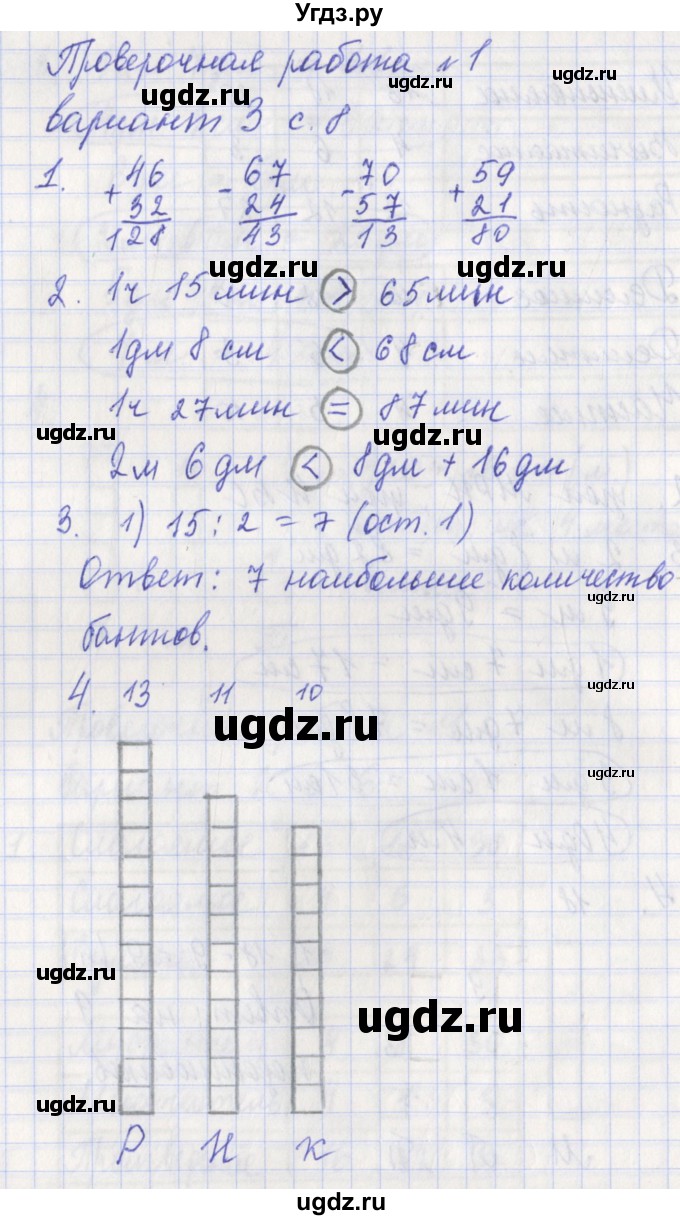 Угдз.ру
Проверочная работа №1
ugdz.ru
ugdz.ru
вариант 3 с. 8
1. 46 67 70 59
+ 32 - 24 - 57 + 21
128 43 13 80
ugdz.ru
ugdz.ru
2. 1ч 15 мин > 65 мин
1дм 8 см < 68 см
1ч 27 мин = 87 мин
ugdz.ru
ugdz.ru
2м 6 дм < 8дм + 16 дм
3. 1) 15 : 2 = 7 (ост. 1)
Ответ: 7 наибольшие количество
ugdz.ru
бантов.
4. 13 11 10
ugdz.ru
ugdz.ru
ugdz.ru
ugdz.ru
ugdz.ru
ugdz.ru
ugdz.ru
Р Н К
ugdz.ru